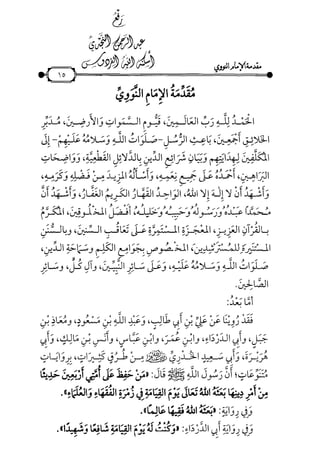 رفع
عبد الرحمن النجدي
أسكنه الله الفردوس
مقدمة الإمام النووي
١٥
مُقَدِّمَةُ الإِمَامِ النَّوَوِيِّ
الْحَمْدُ لِلَّهِ رَبِّ الْعَالَمِينَ، قَيُّومِ السَّمَاوَاتِ وَالأَرَضِينَ، مُدَبِّرِ
الْخَلَائِقِ أَجْمَعِينَ، بَاعِثِ الرُّسُلِ -صَلَوَاتُ اللَّهِ وَسَلَامُهُ عَلَيْهِمْ- إِلَى
الْمُكَلَّفِينَ لِهِدَايَتِهِمْ وَبَيَانِ شَرَائِعِ الدِّينِ بِالدَّلَائِلِ الْقَطْعِيَّةِ، وَوَاضِحَاتِ
الْبَرَاهِينِ، أَحْمَدُهُ عَلَى جَمِيعِ نِعَمِهِ، وَأَسْأَلُهُ الْمَزِيدَ مِنْ فَضْلِهِ وَكَرَمِهِ،
وَأَشْهَدُ أَنْ لَا إِلَهَ إِلَّا اللهُ، الْوَاحِدُ الْقَهَّارُ الْكَرِيمُ الْغَفَّارُ، وَأَشْهَدُ أَنَّ
مُحَمَّدًا عَبْدُهُ وَرَسُولُهُ وَحَبِيبُهُ وَخَلِيلُهُ أَفْضَلُ الْمَخْلُوقِينَ، الْمُكَرَّمُ
بِالْقُرْآنِ الْعَزِيزِ، الْمُعْجِزَةِ الْمُسْتَمِرَّةِ عَلَى تَعَاقُبِ السِّنِينَ، وَبِالسُّنَنِ
الْمُسْتَنِيرَةِ لِلْمُسْتَرْشِدِينَ، الْمَخْصُوصِ بِجَوَامِعِ الْكَلِمِ وَسَمَاحَةِ الدِّينِ،
صَلَوَاتُ اللَّهِ وَسَلَامُهُ عَلَيْهِ، وَعَلَى سَائِرِ النَّبِيِّينَ، وَآلِ كُلٍّ، وَسَائِرِ
الصَّالِحِينَ.
أَمَّا بَعْدُ:
فَقَدْ رُوِّينَا عَنْ عَلِيِّ بْنِ أَبِي طَالِبٍ، وَعَبْدِ اللَّهِ بْنِ مَسْعُودٍ، وَمُعَاذِ بْنِ
جَبَلٍ، وَأَبِي الدَّرْدَاءِ، وَابْنِ عُمَرَ، وَابْنِ عَبَّاسٍ، وَأَنَسِ بْنِ مَالِكٍ، وَأَبِي
هُرَيْرَةَ، وَأَبِي سَعِيدٍ الْخُدْرِيِّ ﷺ مِنْ طُرُقٍ كَثِيرَاتٍ، بِرِوَايَاتٍ
مُتَنَوِّعَاتٍ؛ أَنَّ رَسُولَ اللَّهِ ﷺ قَالَ: «مَنْ حَفِظَ عَلَى أُمَّتِي أَرْبَعِينَ حَدِيثًا
مِنْ أَمْرِ دِينِهَا بَعَثَهُ اللهُ تَعَالَى يَوْمَ الْقِيَامَةِ فِي زُمْرَةِ الْفُقَهَاءِ وَالْعُلَمَاءِ».
وَفِي رِوَايَةٍ: «بَعَثَهُ اللهُ فَقِيهًا عَالِمًا».
وَفِي رِوَايَةِ أَبِي الدَّرْدَاءِ: «وَكُنْتُ لَهُ يَوْمَ الْقِيَامَةِ شَافِعًا وَشَهِيدًا».